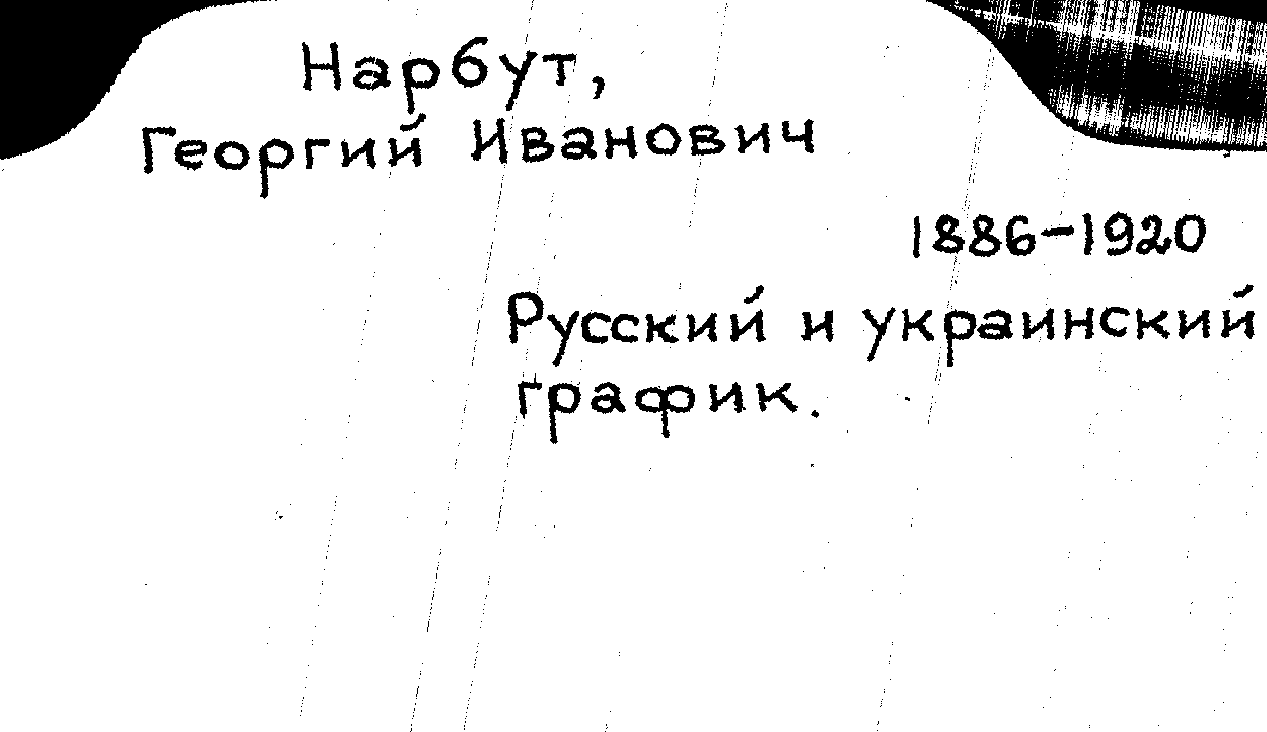 Нарбут,
Георгий Иванович
1886-1920
Русский и украинский
график.